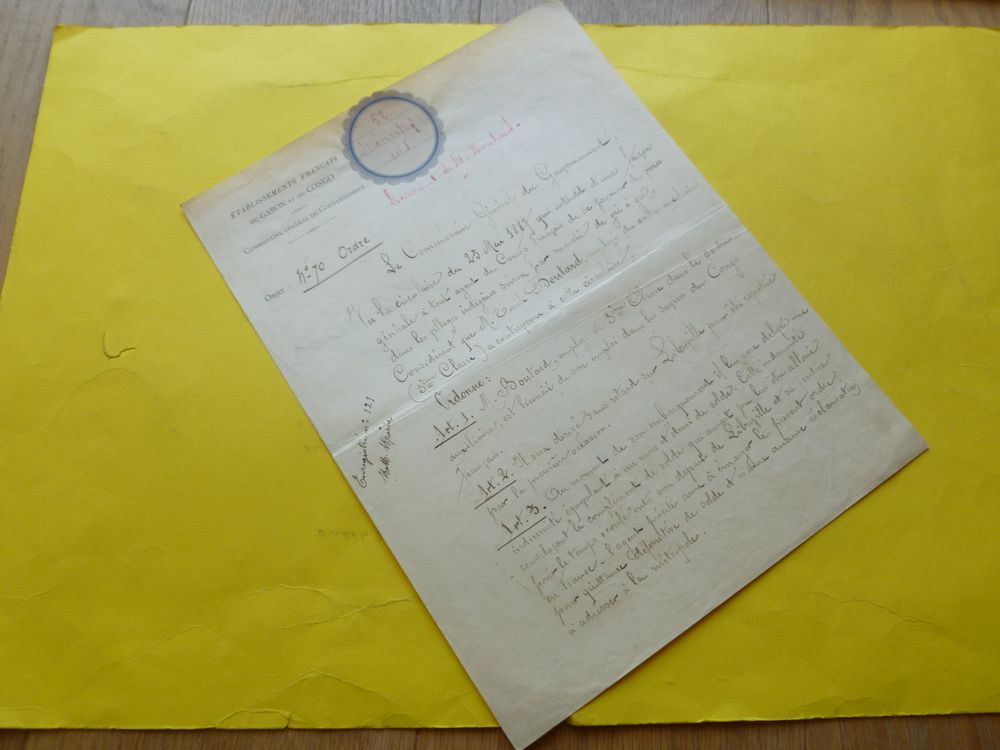 ÉTABLISSEMENTS FRANÇAIS
DU GABON ET DU CONGO
COMMISSAIRE GÉNÉRAL DU GOUVERNEMENT
Objet :
58
Licenciement de M. Boutard
N° 70 Ordre
Le Commissaire Général du Gouvernement
Vu la circulaire du 25 Mai 1887 qui interdit d'une façon
générale à tout agent du Congo français de se pourvoir de vivres
dans les villages indigènes sinon par marché de gré à gré
Considérant que M. Emile Boutard, employé du cadre auxiliaire
(3ème Classe) a contrevenu à cette circulaire :
Ordonne :
Art. 1. M. Boutard, employé de 3ème Classe dans le cadre
auxiliaire, est licencié de son emploi dans les services du Congo
français.
Art. 2. Il sera dirigé sans retard sur Libreville pour être rapatrié
par la première occasion.
Art. 3. Au moment de son embarquement, il lui sera délivré une
indemnité équivalant à un mois et demi de solde. Cette indemnité
remplaçant le complément de solde qui aurait pu lui être alloué
pour le temps écoulé entre son départ de Libreville et sa rentrée
en France - l'agent précité aura à émarger le présent ordre
pour quittance définitive de solde et n'aura aucune réclamation
à adresser à la métropole.
121